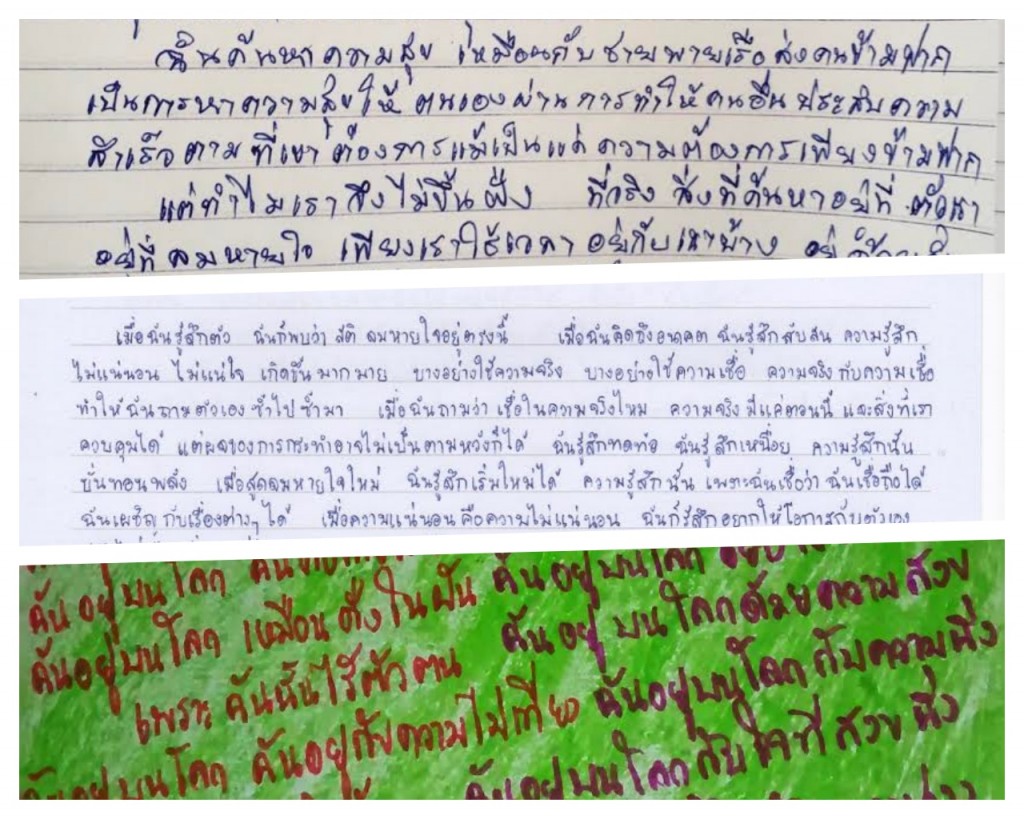 ฉันค้นหาความสุข เหมือนกับชายพายเรือส่งคนข้ามฟาก
เป็นการหาความสุขให้ ตนเองผ่านการทำให้คนอื่น ประสบความ
สำเร็จ ตามที่เขาต้องการแม้เป็นแค่ความต้องการเพียงข้ามฟาก
แต่ทำไมเราถึงไม่ขึ้นฝั่ง ที่จริง สิ่งที่ค้นหาอยู่ที่ ตัวเรา
อยู่ที่ ลมหายใจ เพียงเราใช้เวลา อยู่กับเขาบ้าง
เมื่อฉันรู้สึกตัว ฉันก็พบว่า สติ ลมหายใจอยู่ตรงนี้ เมื่อฉันคิดถึงอนาคต ฉันรู้สึกสับสน ความรู้สึก
ไม่แน่นอน ไม่แน่ใจ เกิดขึ้นมากมาย บางอย่างใช้ความจริง บางอย่างใช้ความเชื่อ ความจริงกับความเชื่อ
ทำให้ฉันถามตัวเอง ซ้ำไปซ้ำมา เมื่อฉันถามว่า เชื่อในความจริงไหม ความจริง มีแค่ตอนนี้ และสิ่งที่เรา
ควบคุมได้ แต่ผลของการกระทำอาจไม่เป็นตามหวังก็ได้ ฉันรู้สึกทดท้อ ฉันรู้สึกเหนื่อย ความรู้สึกนั้น
บั่นทอนพลัง เมื่อสูดลมหายใจใหม่ ฉันรู้สึกเริ่มใหม่ได้ ความรู้สึกนั้น เพราะฉันเชื่อว่า ฉันเชื่อถือได้
ฉันเผชิญกับเรื่องต่างๆ ได้ เมื่อความแน่นอน คือความไม่แน่นอน ฉันก็รู้สึกอยากให้โอกาสกับตัวเอง
ฉันอยู่บนโลก
ฉันอยู่บนโลก เหมือนดั่งในฝัน ฉันอยู่บนโลก
เพราะฉันนั้นไร้ตัวตน ฉันอยู่ บนโลกด้วยความสงบ
ฉันอยู่กับความไม่เที่ยง ฉันอยู่บนโลกกับความนิ่ง
ฉันอยู่บนโลกกับใจที่สงบ นิ่ง